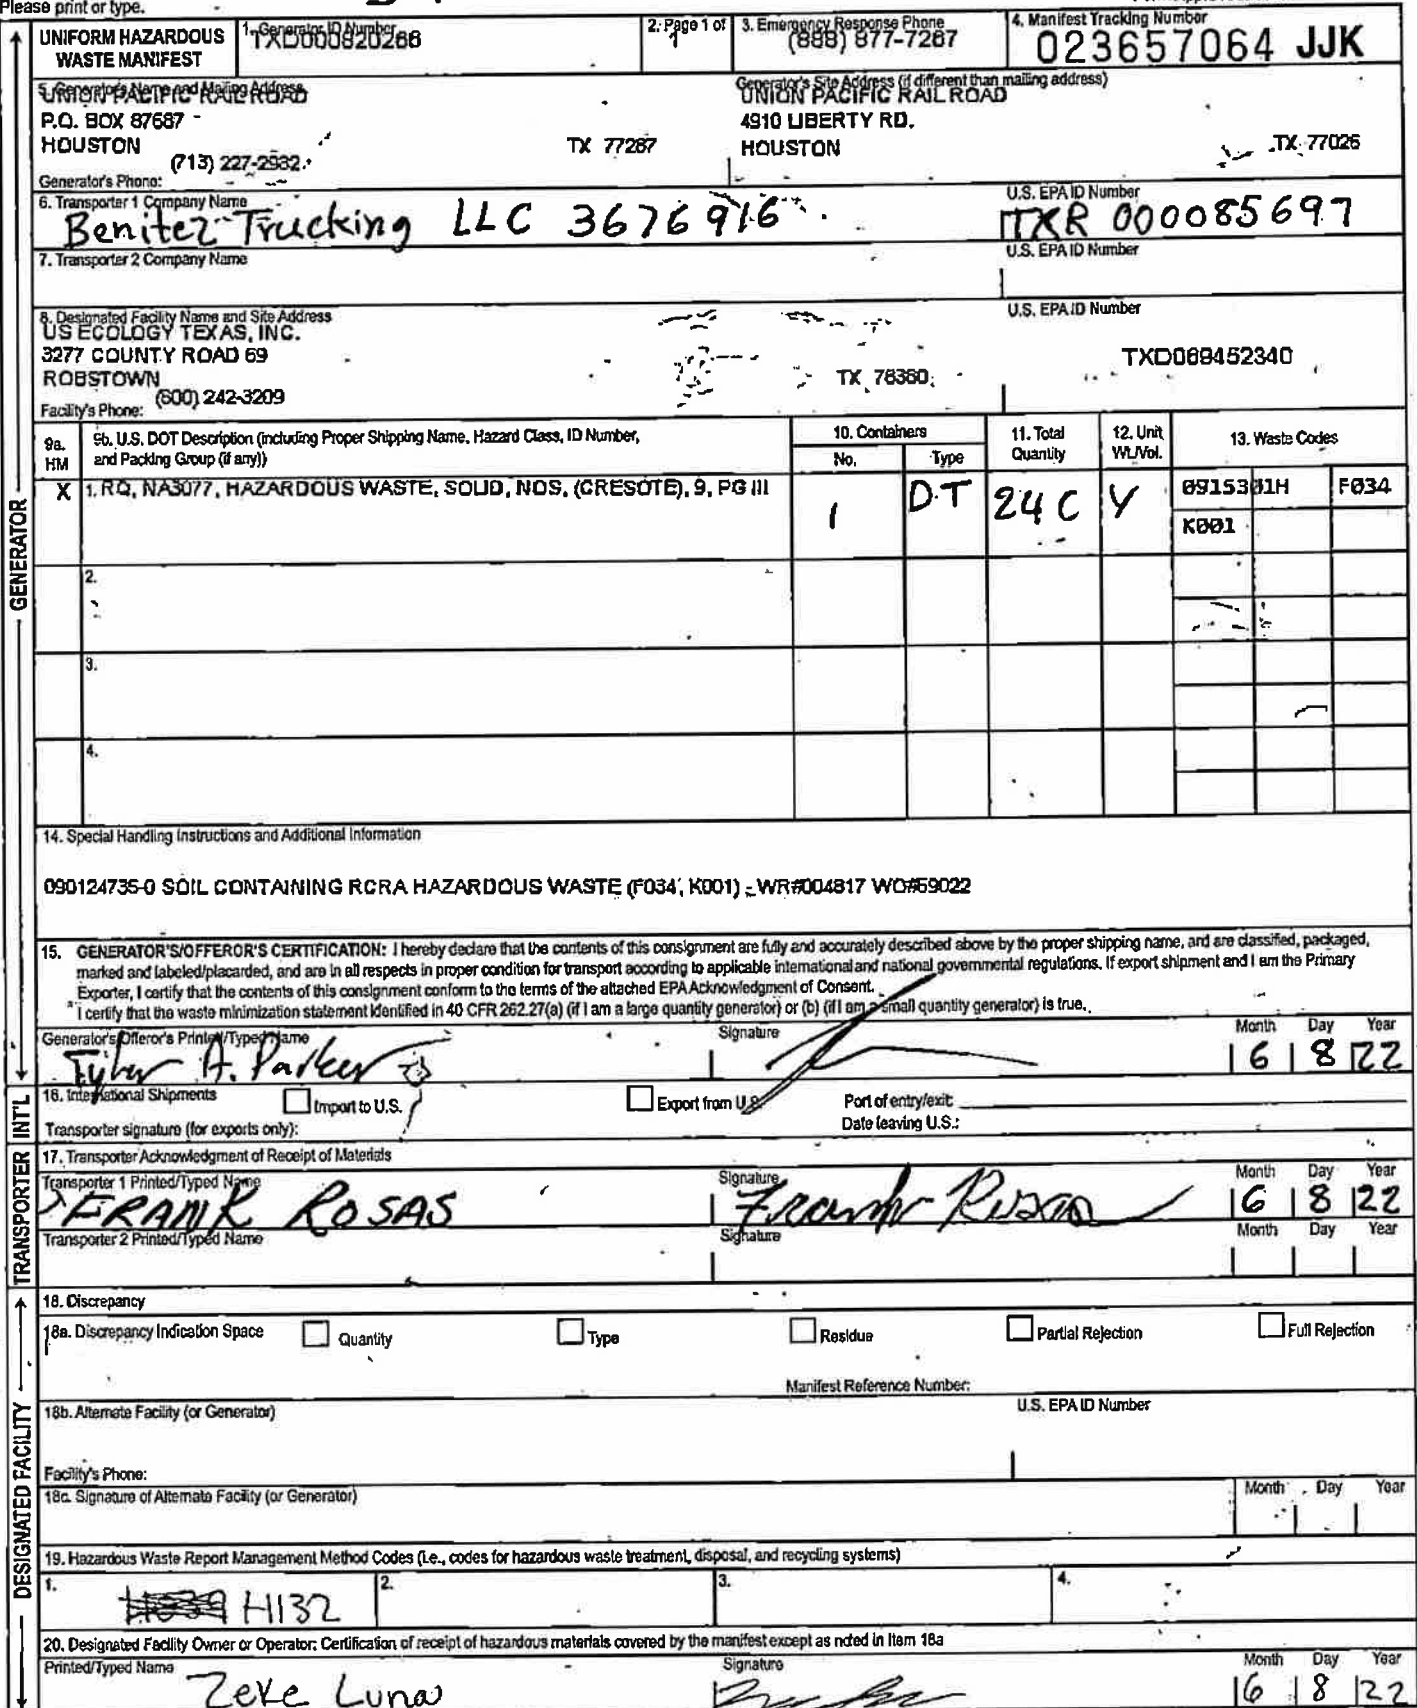 Please print or type.
UNIFORM HAZARDOUS WASTE MANIFEST
1. Generator ID Number
TXD000820266
2. Page 1 of
1
3. Emergency Response Phone
(888) 877-7267
4. Manifest Tracking Number
023657064 JJK
5. Generator's Name and Mailing Address
UNION PACIFIC RAIL ROAD
P.O. BOX 87687
HOUSTON TX 77287
(713) 227-2982
Generator's Phone:
Generator's Site Address (if different than mailing address)
UNION PACIFIC RAIL ROAD
4910 LIBERTY RD.
HOUSTON TX 77026
6. Transporter 1 Company Name
Benitez Trucking LLC 3676916
U.S. EPA ID Number
TXR 000085697
7. Transporter 2 Company Name
U.S. EPA ID Number
8. Designated Facility Name and Site Address
US ECOLOGY TEXAS, INC.
3277 COUNTY ROAD 69
ROBSTOWN TX 78380
(800) 242-3209
Facility's Phone:
U.S. EPA ID Number
TXD069452340
GENERATOR
9a. HM
9b. U.S. DOT Description (including Proper Shipping Name, Hazard Class, ID Number, and Packing Group (if any))
10. Containers
No.
Type
11. Total Quantity
12. Unit Wt./Vol.
13. Waste Codes
X 1. RQ, NA3077, HAZARDOUS WASTE, SOLID, NOS, (CRESOTE), 9, PG III
1 DT 24 C Y
0915301H F034
K001
2.
3.
4.
14. Special Handling Instructions and Additional Information
090124735-0 SOIL CONTAINING RCRA HAZARDOUS WASTE (F034, K001) - WR#004817 WO#59022
15. GENERATOR'S/OFFEROR'S CERTIFICATION: I hereby declare that the contents of this consignment are fully and accurately described above by the proper shipping name, and are classified, packaged,
marked and labeled/placarded, and are in all respects in proper condition for transport according to applicable international and national governmental regulations. If export shipment and I am the Primary
Exporter, I certify that the contents of this consignment conform to the terms of the attached EPA Acknowledgment of Consent.
I certify that the waste minimization statement identified in 40 CFR 262.27(a) (if I am a large quantity generator) or (b) (if I am a small quantity generator) is true.
Generator's/Offeror's Printed/Typed Name
Tyler A. Parker
Signature
Month Day Year
6 8 22
INT'L
16. International Shipments
Import to U.S.
Export from U.S.
Port of entry/exit:
Transporter signature (for exports only):
Date leaving U.S.:
TRANSPORTER
17. Transporter Acknowledgment of Receipt of Materials
Transporter 1 Printed/Typed Name
FRANK ROSAS
Signature
Frank Rosas
Month Day Year
6 8 22
Transporter 2 Printed/Typed Name
Signature
Month Day Year
DESIGNATED FACILITY
18. Discrepancy
18a. Discrepancy Indication Space
Quantity
Type
Residue
Partial Rejection
Full Rejection
Manifest Reference Number:
18b. Alternate Facility (or Generator)
U.S. EPA ID Number
Facility's Phone:
18c. Signature of Alternate Facility (or Generator)
Month Day Year
19. Hazardous Waste Report Management Method Codes (i.e., codes for hazardous waste treatment, disposal, and recycling systems)
1. H132
2.
3.
4.
20. Designated Facility Owner or Operator: Certification of receipt of hazardous materials covered by the manifest except as noted in Item 18a
Printed/Typed Name
Zeke Luna
Signature
Month Day Year
6 8 22